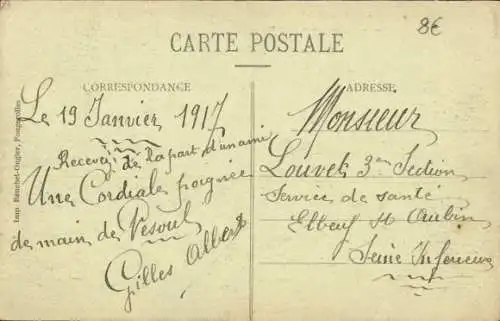 8€
CARTE POSTALE
CORRESPONDANCE
ADRESSE
Le 19 Janvier 1917
Recevez de la part d'un ami
Une Cordiale poignée
de main de Vesoul
Gilles Albert
Monsieur
Louvet 3em Section
Service de santé
Elbeuf St Aubin
Seine Inferieure
Imp. Fougerolles